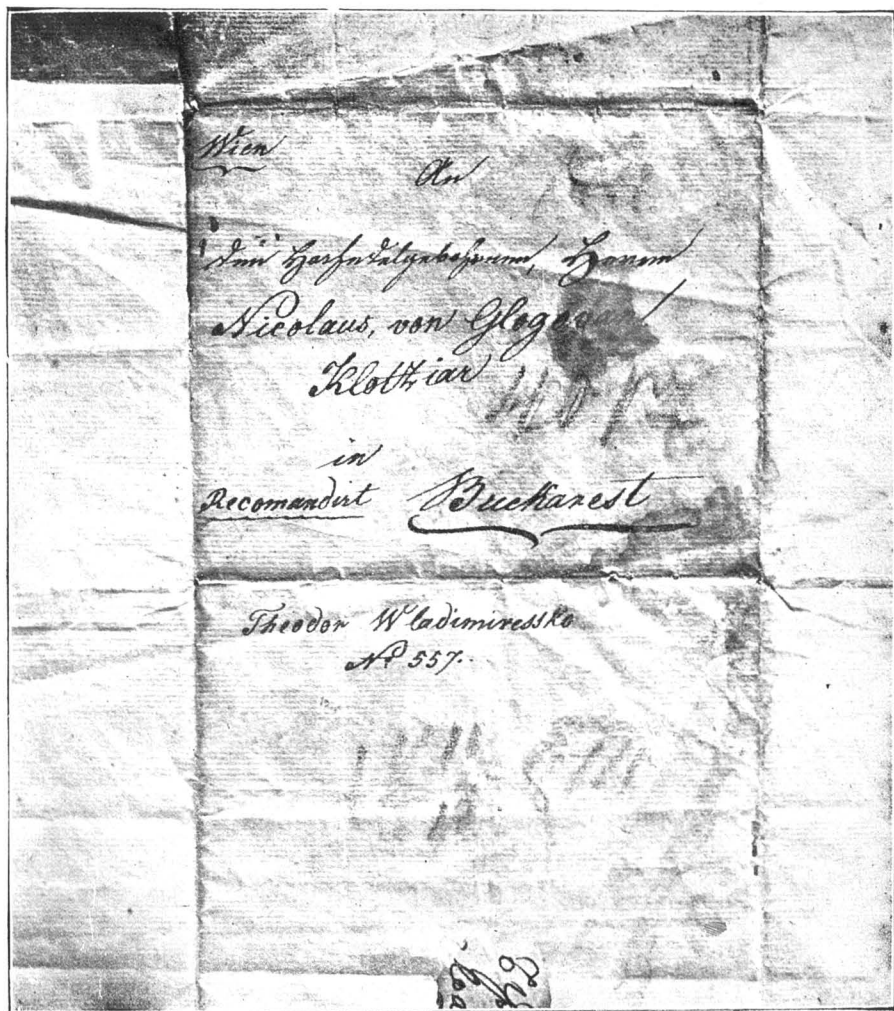 Wien
An
den Hochedelgebohrnen, Herrn
Nicolaus, von
Klotziar
in
Recomandirt Buckarest
Theodor Wladimiressko
No 557.